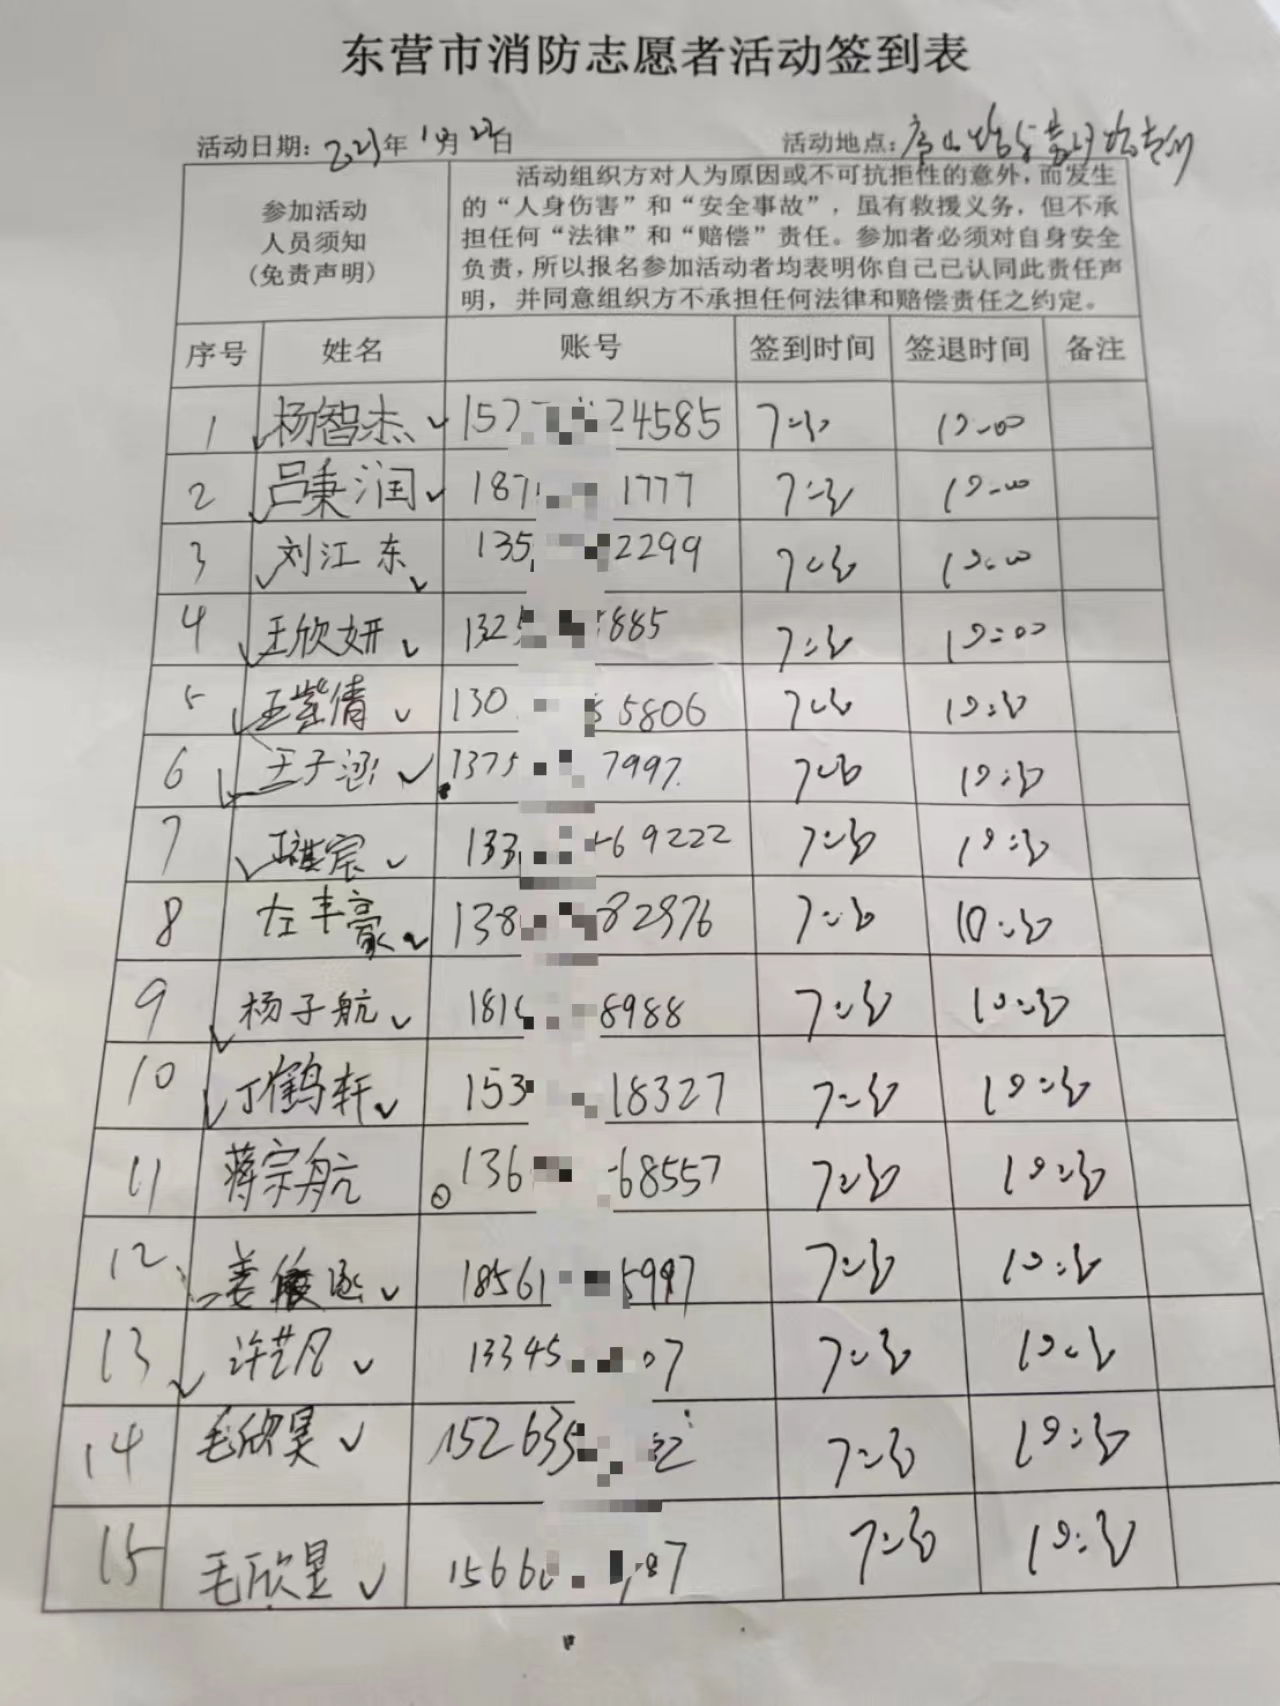 东营市消防志愿者活动签到表
活动日期: 2023年 10月 22日 活动地点:
参加活动
人员须知
(免责声明)
活动组织方对人为原因或不可抗拒性的意外,而发生
的“人身伤害”和“安全事故”,虽有救援义务,但不承
担任何“法律”和“赔偿”责任。参加者必须对自身安全
负责,所以报名参加活动者均表明你自己已认同此责任声
明,并同意组织方不承担任何法律和赔偿责任之约定。
序号 姓名 账号 签到时间 签退时间 备注
1 杨智杰 157 24585 7:30 10:00
2 吕秉润 187 1777 7:30 10:00
3 刘江东 135 2299 7:30 10:00
4 王欣妍 1325 885 7:30 10:00
5 王紫倩 130 5806 7:30 10:30
6 王子涵 1375 7997 7:30 10:30
7 宸 133 69222 7:30 10:30
8 左丰豪 138 82976 7:30 10:30
9 杨子航 181 8988 7:30 10:30
10 丁鹤轩 153 18327 7:30 10:30
11 蒋宗航 136 68557 7:30 10:30
12 姜 18561 5997 7:30 10:30
13 许艺凡 13345 07 7:30 10:30
14 毛欣昊 152635 2 7:30 10:30
15 毛欣昱 1566 87 7:30 10:30